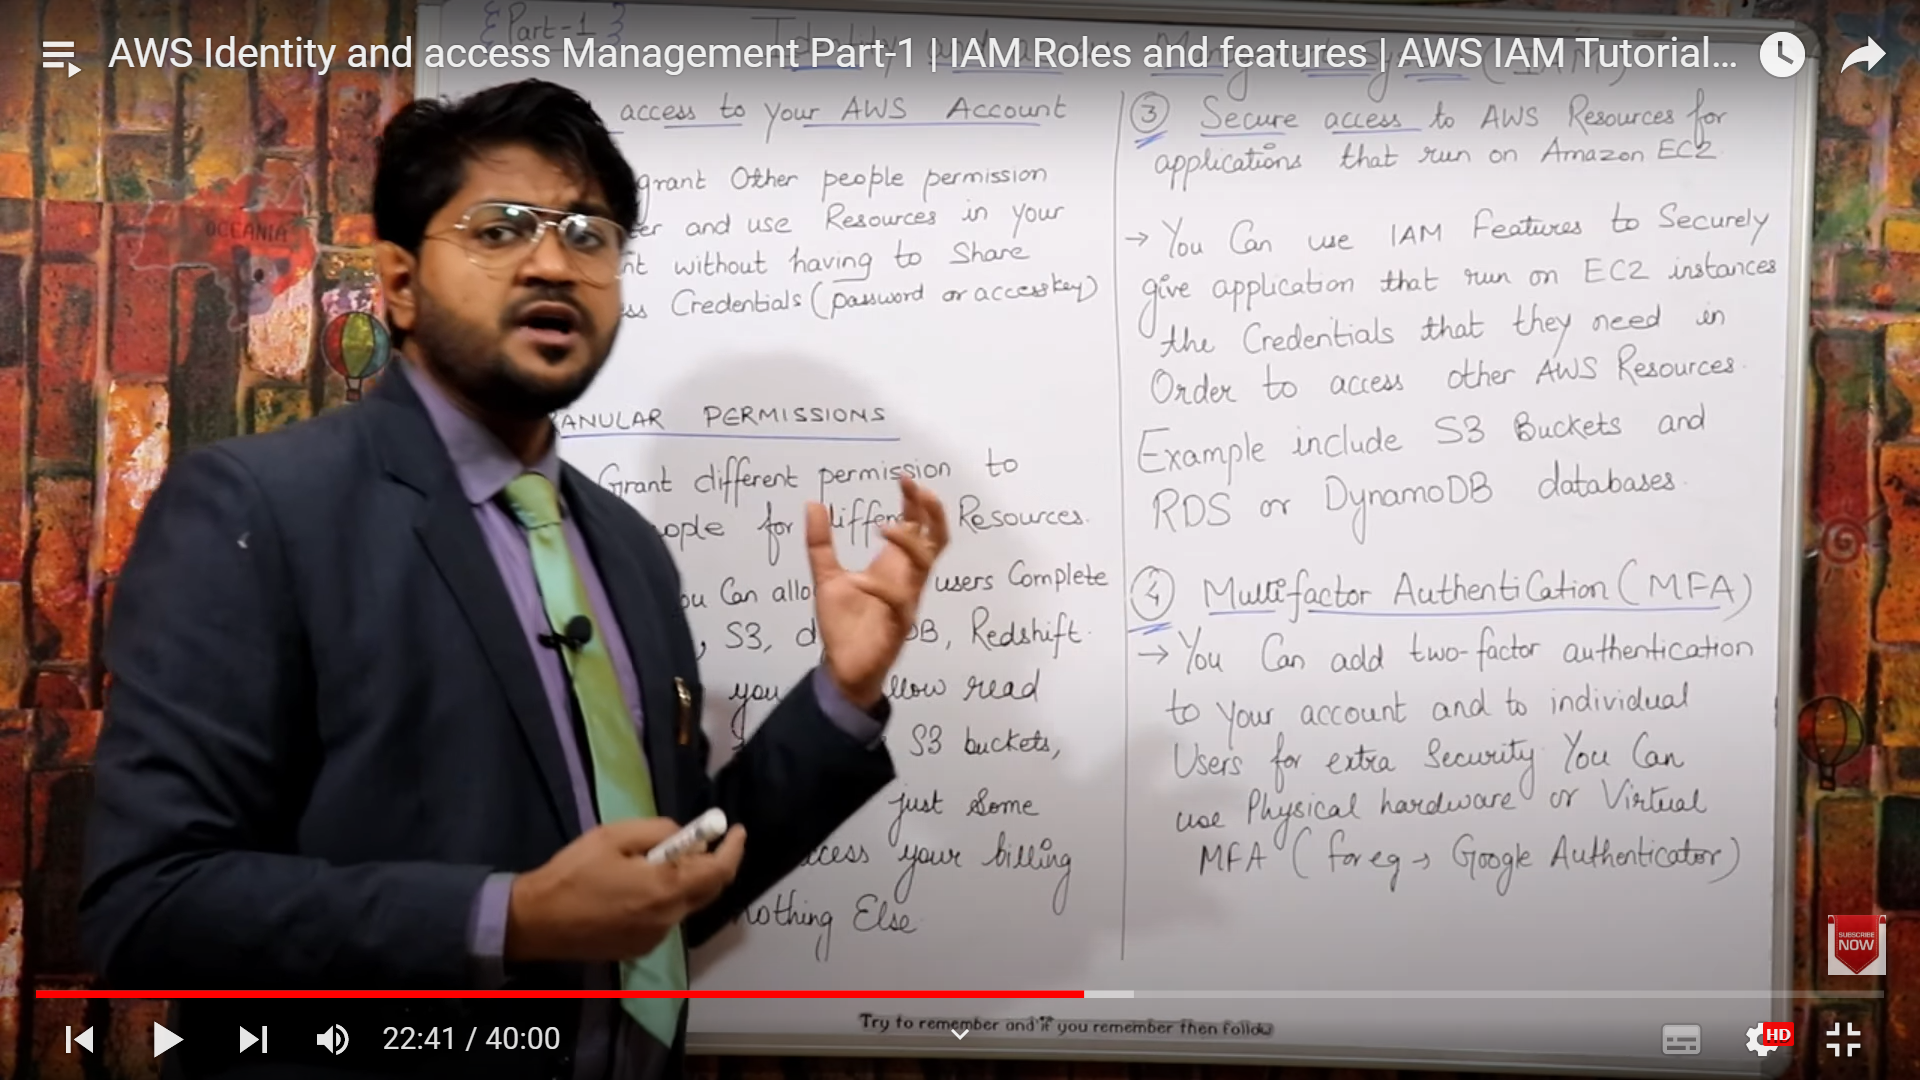 AWS Identity and access Management Part-1 | IAM Roles and features | AWS IAM Tutorial...
{Part-1}
access to your AWS Account
grant Other people permission
and use Resources in your
without having to Share
Credentials (password or access key)
ANULAR PERMISSIONS
Grant different permission to
for Resources.
Can users Complete
S3, Redshift.
you read
S3 buckets,
just some
your billing
nothing Else
③ Secure access to AWS Resources for
applications that run on Amazon EC2
→ You Can use IAM Features to Securely
give application that run on EC2 instances
the Credentials that they need in
Order to access other AWS Resources.
Example include S3 Buckets and
RDS or DynamoDB databases.
④ Multifactor Authentication (MFA)
→ You Can add two-factor authentication
to your account and to individual
Users for extra Security You Can
use Physical hardware or Virtual
MFA (for eg → Google Authenticator)
OCEANIA
SUBSCRIBE
NOW
Try to remember and if you remember then follow
22:41 / 40:00
HD